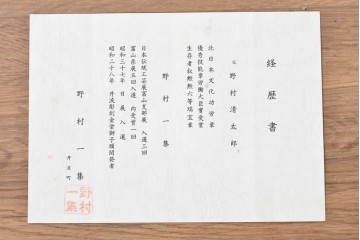 経歴書
父 野村清太郎
北日本文化功労章
優秀技能章労働大臣賞受賞
生存者叙勲勲六等瑞宝章
野村一集
日本伝統工芸展富山支部展 入選三回
富山県展五回入選 内受賞一回
昭和三十七年 日展入選
昭和二十八年 井波彫刻金雲獅子頭開発者
野村一集
井波町
野村
一集